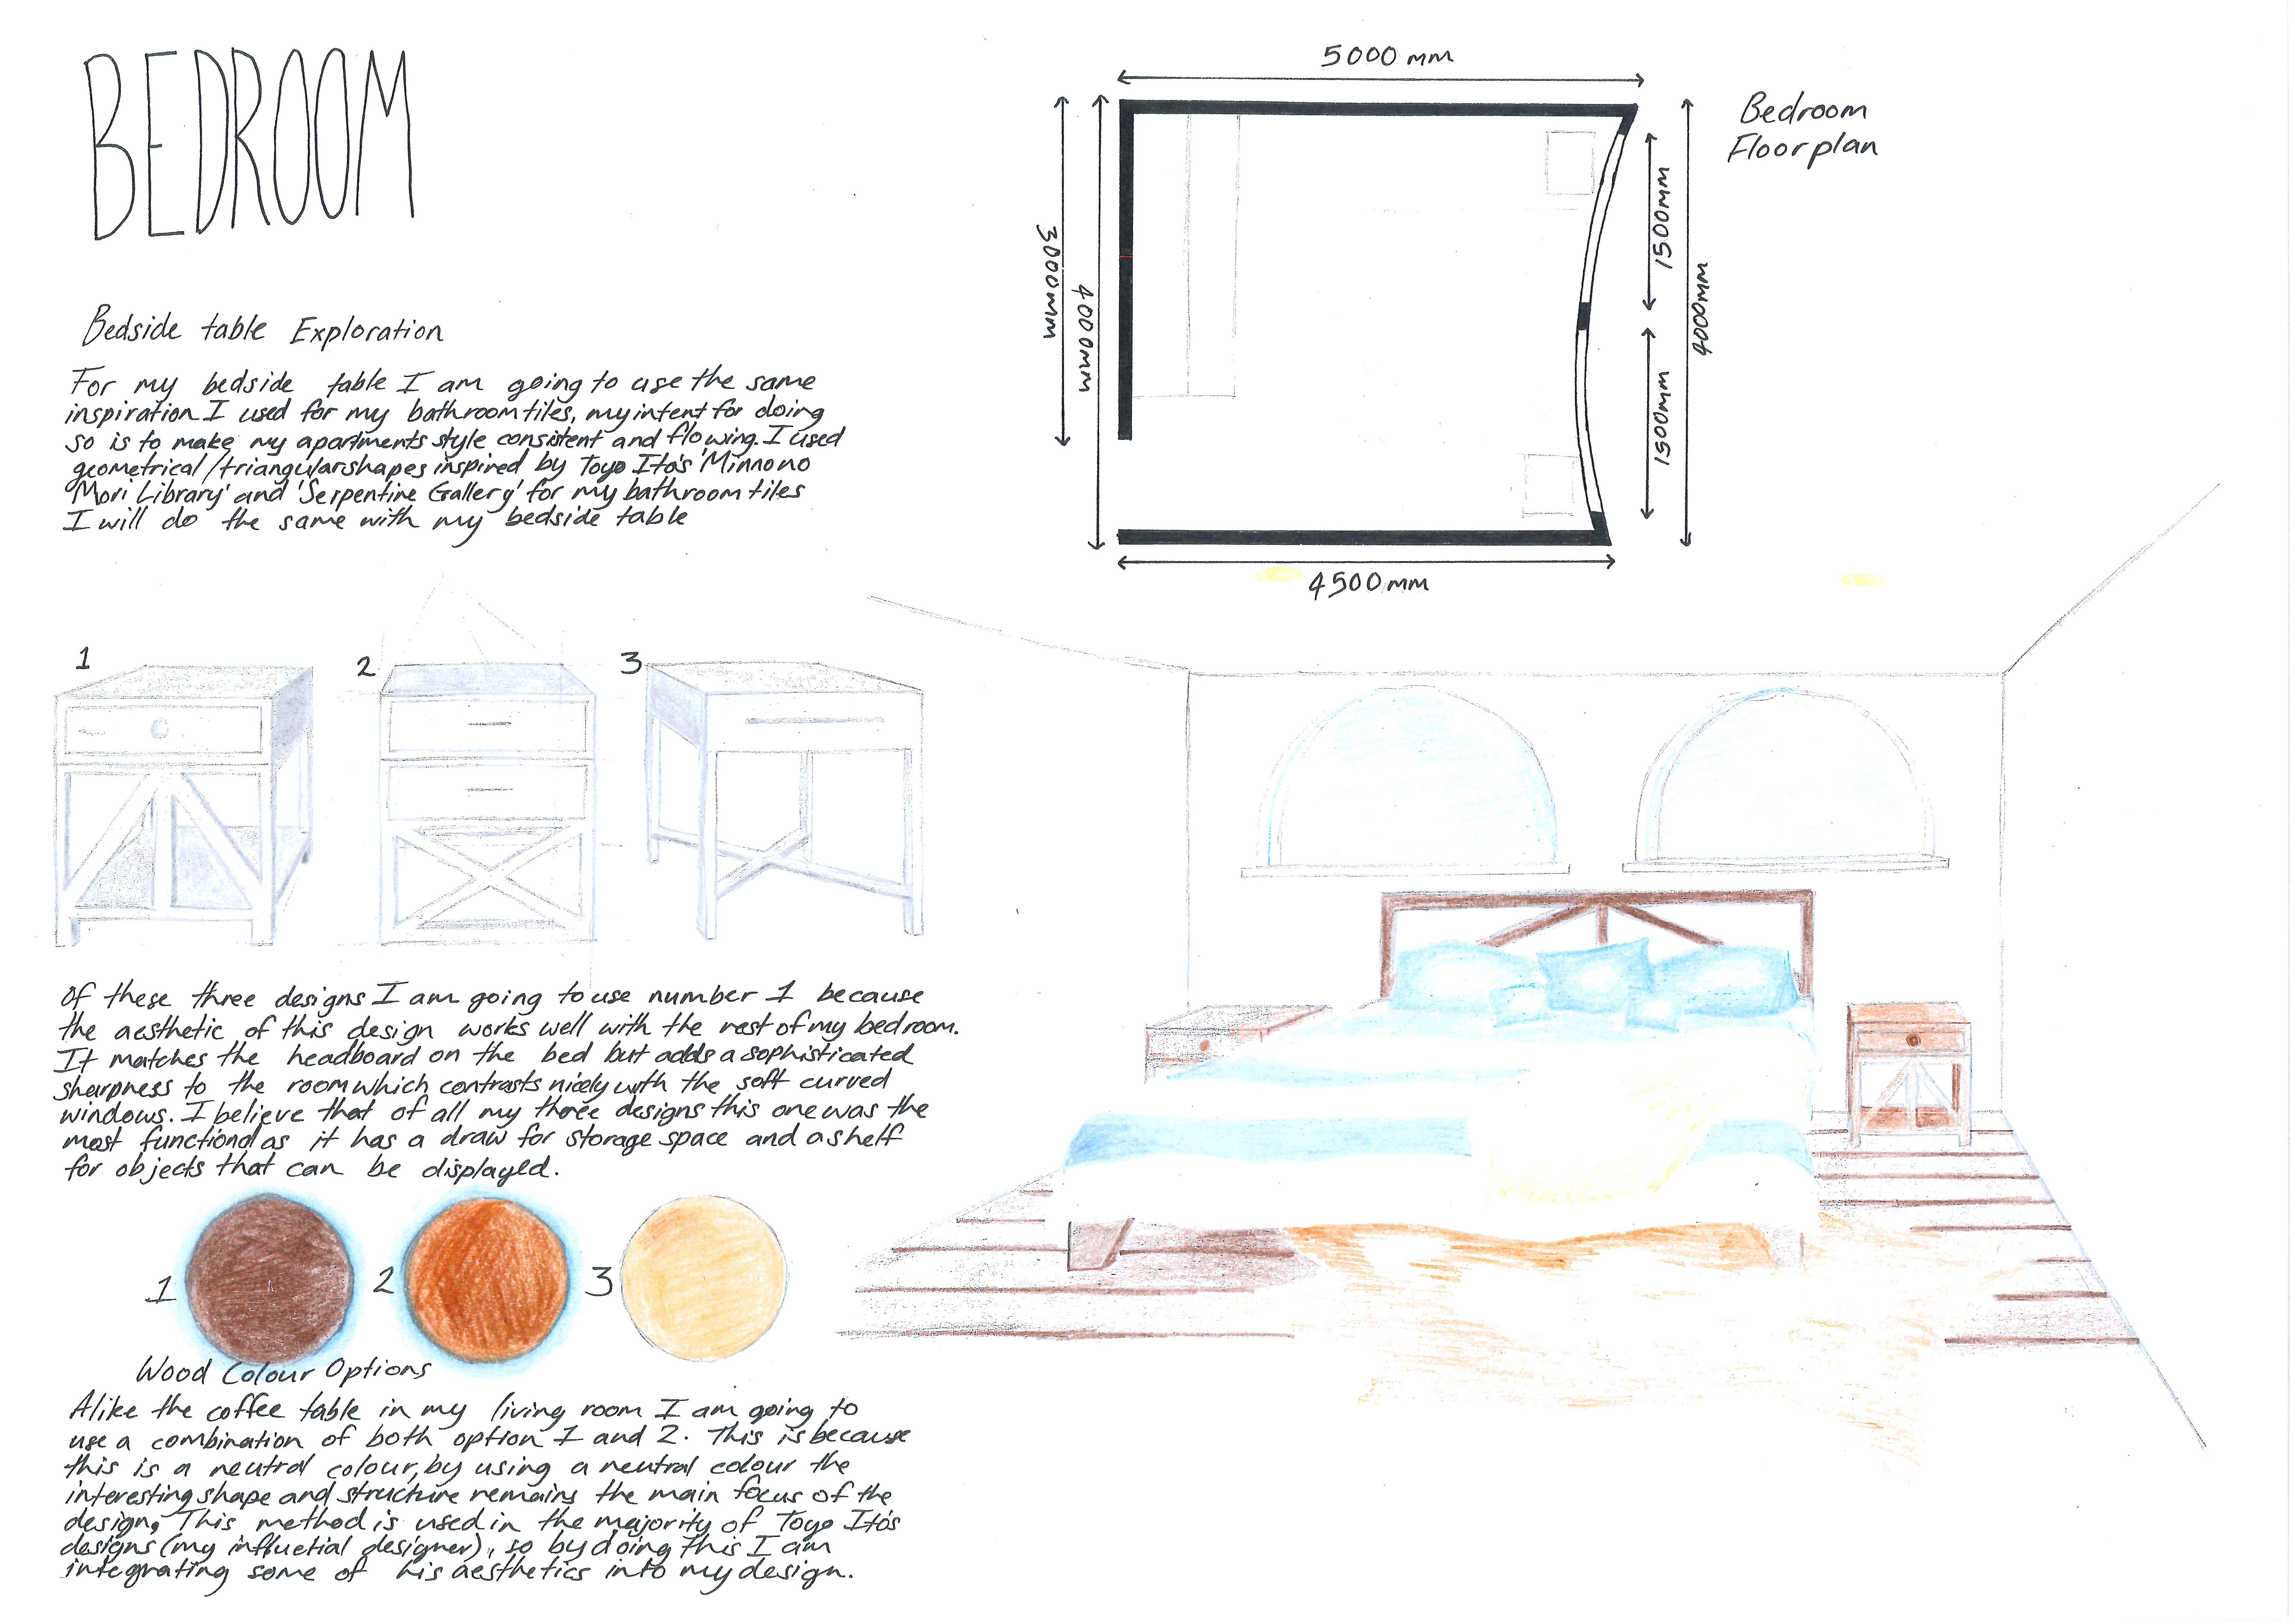 BEDROOM
Bedside table Exploration
For my bedside table I am going to use the same
inspiration I used for my bathroom tiles, my intent for doing
so is to make my apartments style consistent and flowing. I used
geometrical/triangular shapes inspired by Toyo Ito's 'Minnono
Mori Library' and 'Serpentine Gallery' for my bathroom tiles
I will do the same with my bedside table
5000mm
Bedroom
Floorplan
3000mm
4000mm
1500mm
1500mm
4000mm
4500mm
1
2
3
Of these three designs I am going to use number 1 because
the aesthetic of this design works well with the rest of my bedroom.
It matches the headboard on the bed but adds a sophisticated
sharpness to the room which contrasts nicely with the soft curved
windows. I believe that of all my three designs this one was the
most functional as it has a draw for storage space and a shelf
for objects that can be displayed.
1
2
3
Wood Colour Options
Alike the coffee table in my living room I am going to
use a combination of both option 1 and 2. This is because
this is a neutral colour, by using a neutral colour the
interesting shape and structure remains the main focus of the
design. This method is used in the majority of Toyo Ito's
designs (my influetial designer), so by doing this I am
integrating some of his aesthetics into my design.